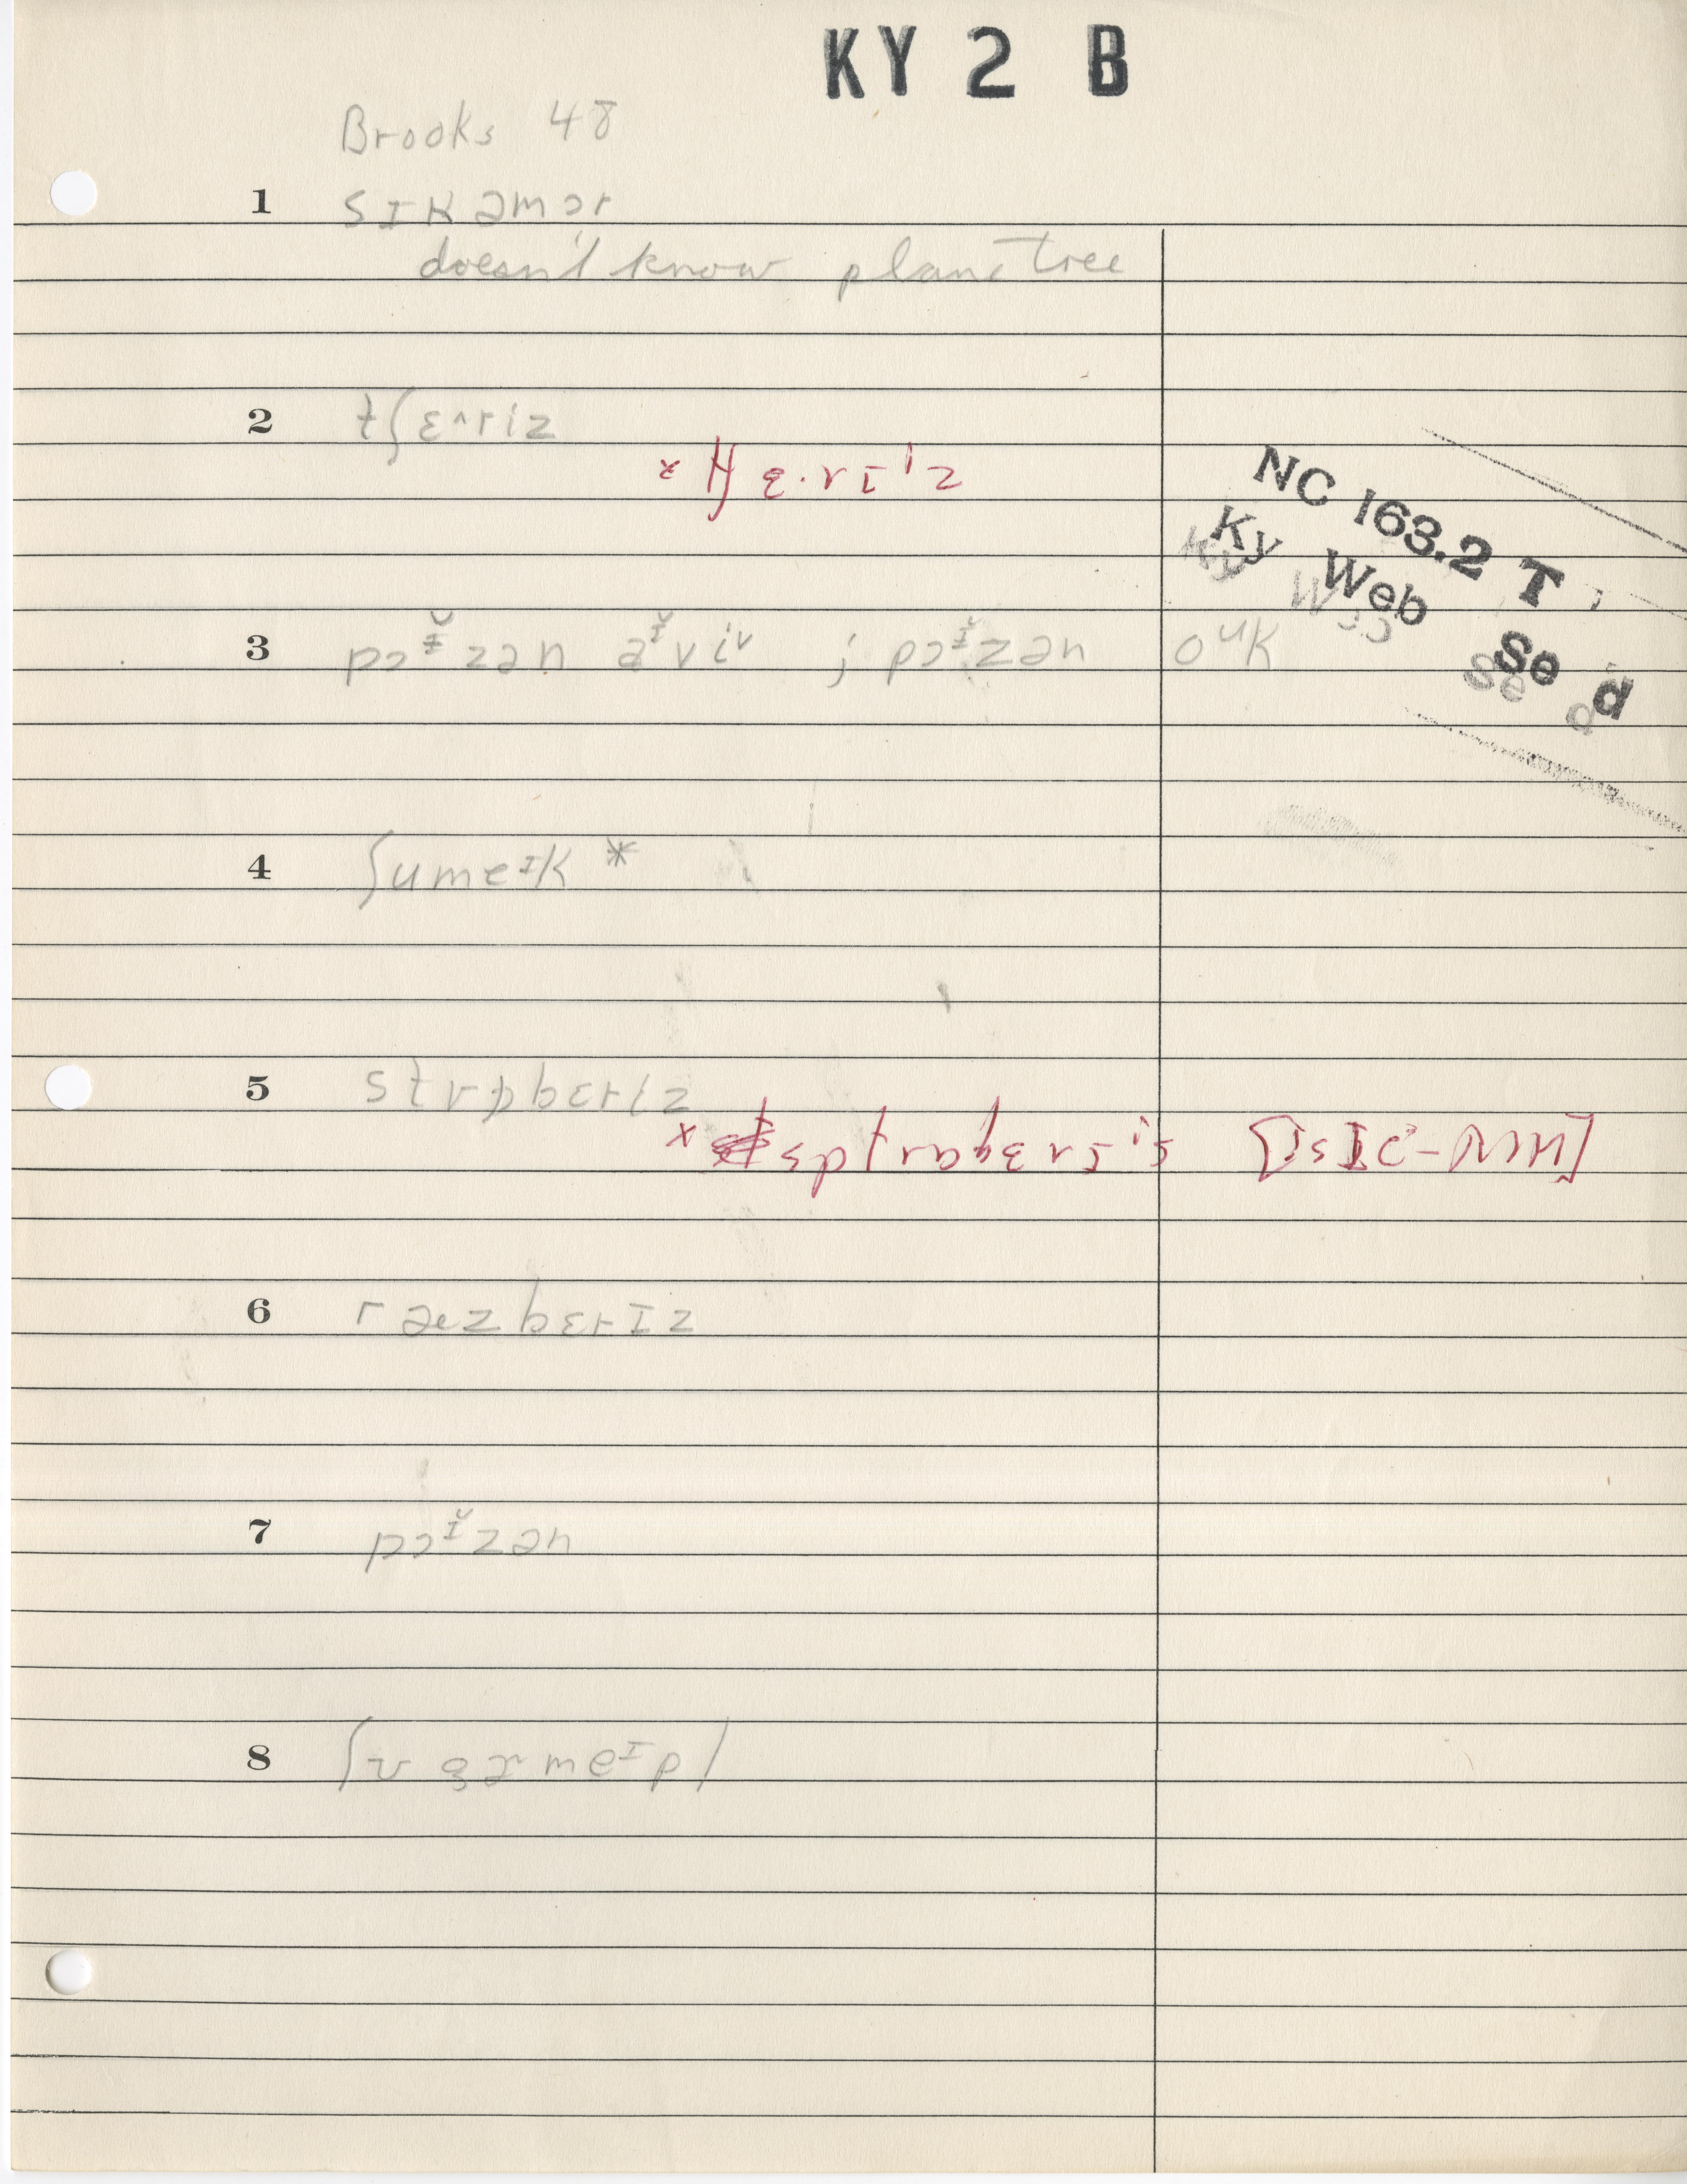 KY 2 B
Brooks 48
1 sɪkəmɔr
doesn't know plane tree
2 tʃɛ^riz
NC 163.2 T
Ky Web
Se d
3 pɔɪ̆zən aɪ̆viv ; pɔɪ̆zən oᵘk
4 ʃumeɪk *
5 strɒbɛriz
6 ræzbɛrɪz
7 pɔɪ̆zən
8 ʃʊgɚmeɪpl